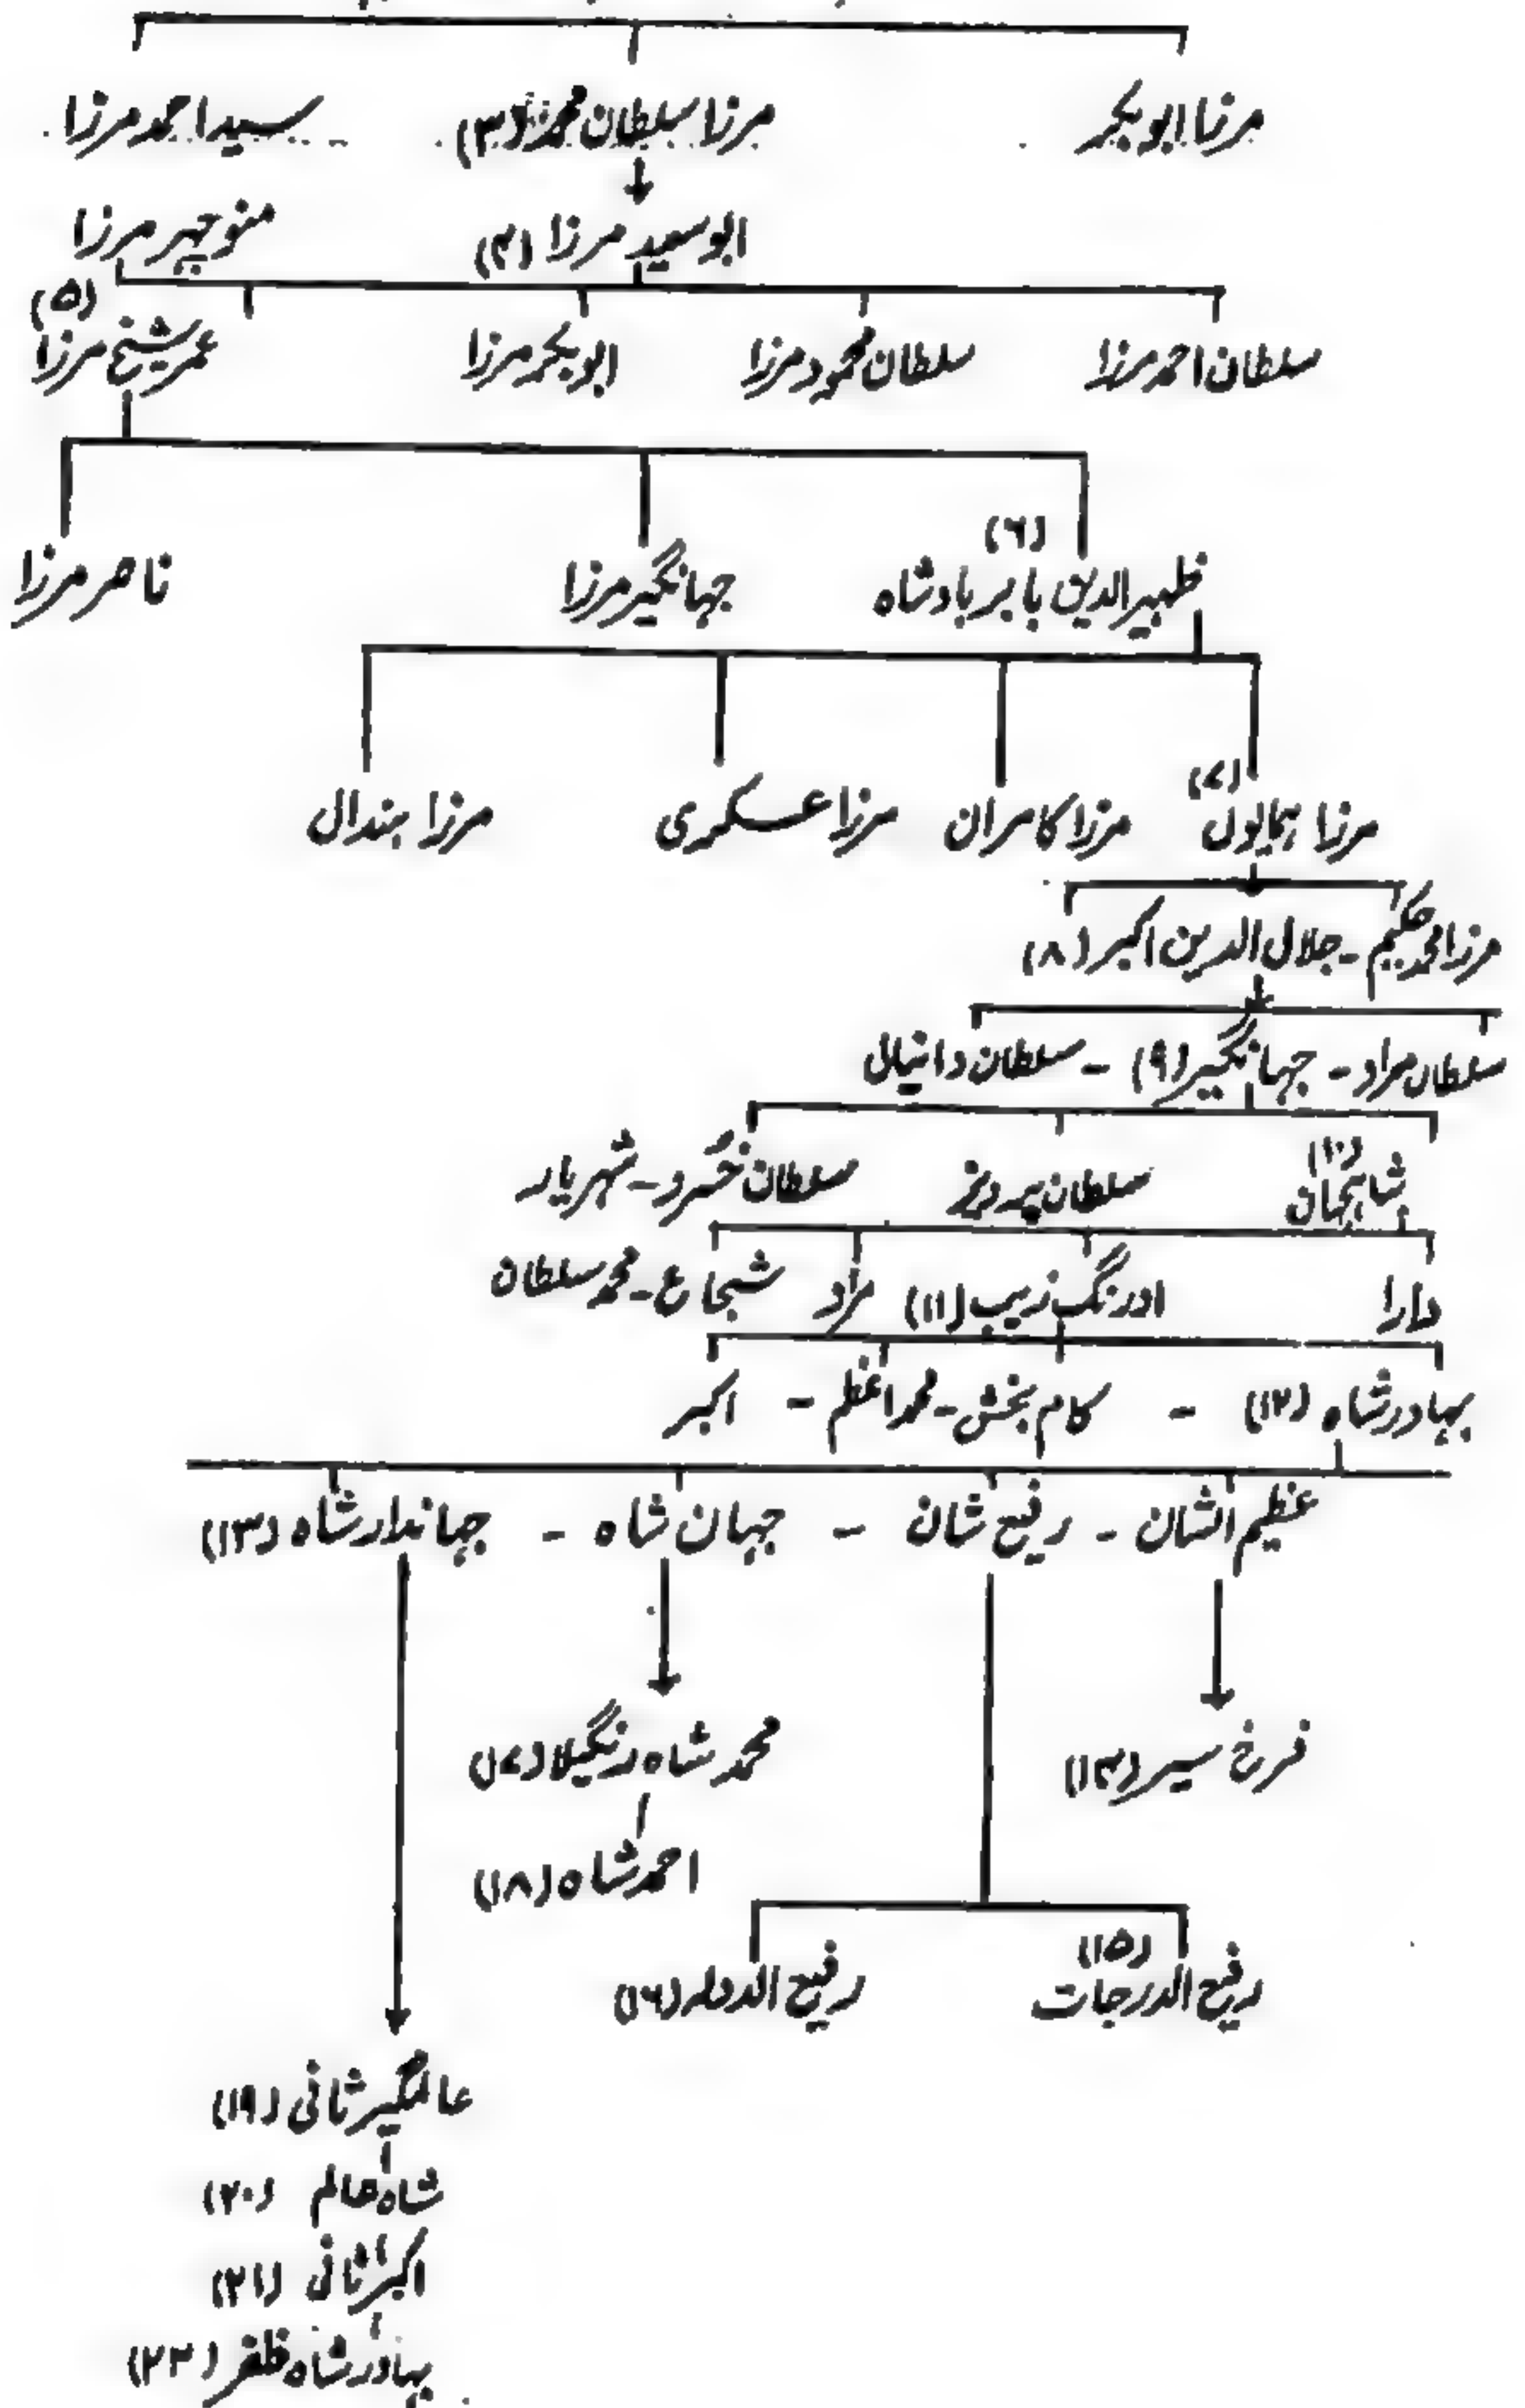 مرزا ابوبکر مرزا سلطان محمد (۳) سید احمد مرزا
ابوسعید مرزا (۴) منوچہر مرزا
(۵)
سلطان احمد مرزا سلطان محمود مرزا ابوبکر مرزا عمر شیخ مرزا
(۶)
ظہیر الدین بابر بادشاہ جہانگیر مرزا ناصر مرزا
(۷)
مرزا ہمایوں مرزا کامران مرزا عسکری مرزا ہندال
مرزا محمد حکیم - جلال الدین اکبر (۸)
سلطان مراد - جہانگیر (۹) - سلطان دانیال
(۱۰)
شاہجہان سلطان پرویز سلطان خسرو - شہریار
دارا اورنگ زیب (۱۱) مراد شجاع - محمد سلطان
بہادر شاہ (۱۲) - کام بخش - محمد اعظم - اکبر
عظیم الشان - رفیع شان - جہان شاہ - جہاندار شاہ (۱۳)
فرخ سیر (۱۴) محمد شاہ رنگیلا (۱۷)
احمد شاہ (۱۸)
(۱۵)
رفیع الدرجات رفیع الدولہ (۱۶)
عالمگیر ثانی (۱۹)
شاہ عالم (۲۰)
اکبر ثانی (۲۱)
بہادر شاہ ظفر (۲۲)